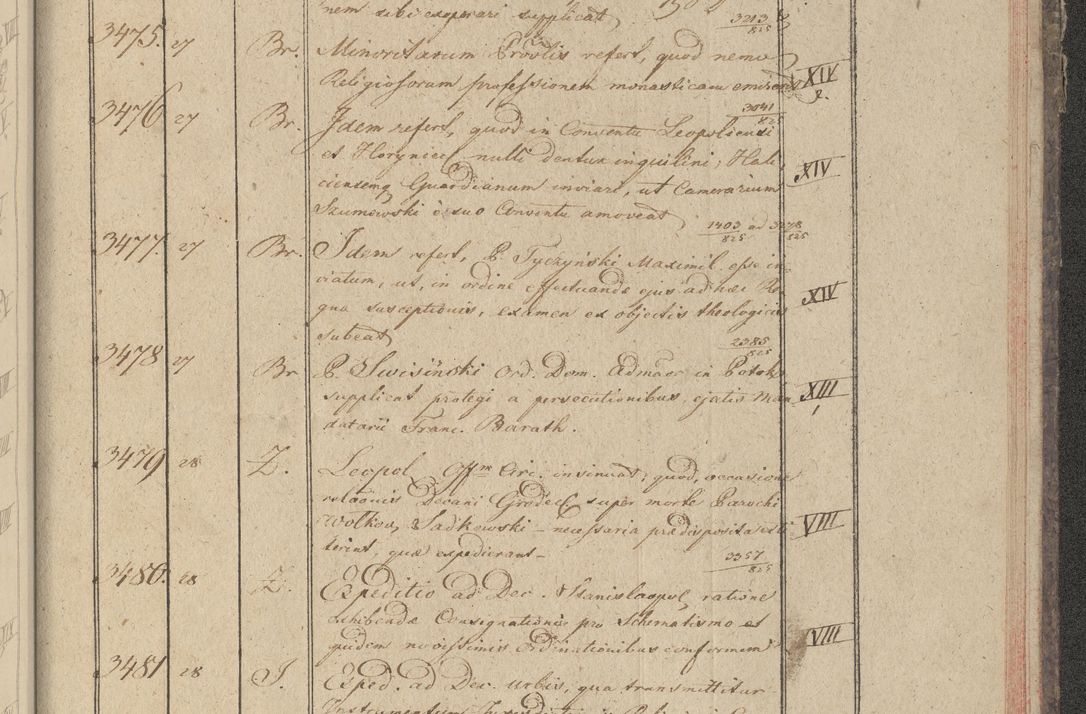 nem sibi supplicat
3213/825
3475. 27 Br. Minoritarum Provlis refert, quod nemo
Religiosorum professionem monasticam emiserit XIV 2.
3041/825
3476 27 Br. Idem refert, quod in Conventu Leopoliensi
et Horyniec nulli dentur inquilini; Hali
ciensemq Guardianum inviari, ut Camerarium XIV
Szumewski e suo Conventu amoveat
1403/825 ad 3278/825
3477. 27 Br. Idem refert, P. Tyczyński Maximil. esse in=
viatum, ut, in ordine effectuandae ejus ad haec Re
gna susceptionis, examen ex objectis theologicis XIV
subeat
2385/825
3478 27 Br P. Śliwiśinski Ord. Dom. Admaor in Potok
supplicat protegi a persecutionibus, ejatis Man XIII
datarii Franc. Barath.
3479 28 Z. Leopol Offm Circ. insinuat, quod, occasione
relaōnis Decani Grodec super morte Parochi
Wolkow Sadkowski – necessaria praedisposita exti VIII
terint, quae expedierant –
3357/825
3480. 28 Z. Expeditio ad Dec. Stanislaopol, ratione
exhibendae Consignationis pro Schematismo et
quidem novissimis Ordinationibus conformem VIII
3481 28 J. Exped. ad Dec. urbis, qua transmittitur
Instrumentum